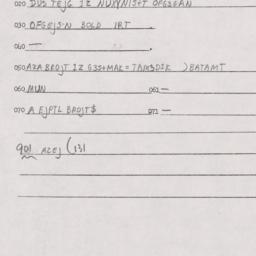 020 DUS TEJG 1Z NUXYNIS+T OFGSEAN
030 OFGEJS·N BOLD IRT
040 —
050 AZA BROJT 1Z G3S+MAL=TAM3DIK )BATAMT
060 MUN 061 —
070 A EJPTL BROJT$ 071 —
901 AZEJ (131